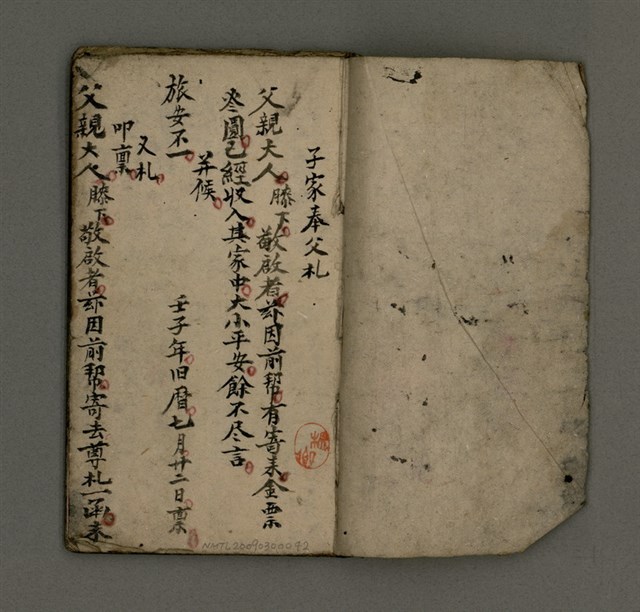 子家奉父札
父親大人膝下敬啟者茲因前幫有寄來金票
叁圓已經収入其家中大小平安餘不尽言
并候
旅安不一
壬子年旧曆七月廿二日稟
又札
叩稟
父親大人膝下敬啟者茲因前幫寄去尊札一函未
NMTL20090300092